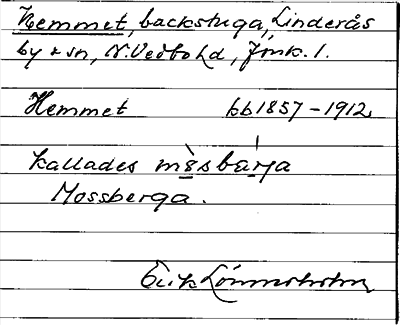 Hemmet, backstuga, Linderås
by & sn, N. Vedbo hd, Jönk. l.
Hemmet kb 1857-1912
kallades mòsbárja
Mossberga.
Erik Lönnerholm